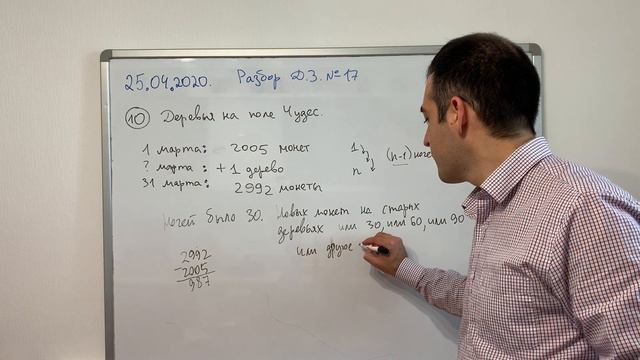 25.04.2020. Разбор Д.З. №17
10 Деревья на поле Чудес.
1 марта: 2005 монет
? марта: +1 дерево
31 марта: 2992 монеты
1
n (n-1) ночей
Ночей было 30. Новых монет на старых
деревьях или 30, или 60, или 90
или другое
2992
-2005
987